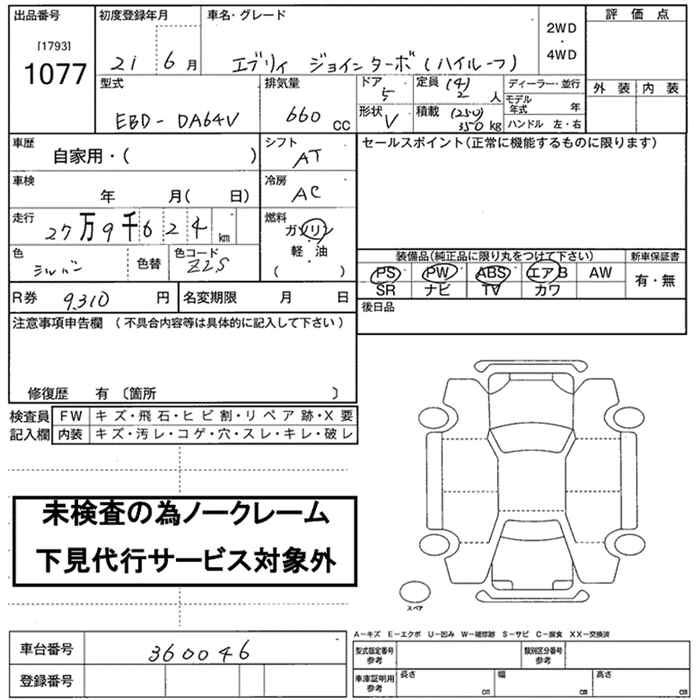 出品番号
[1793]
1077
初度登録年月
21 6 月
車名・グレード
エブリィ ジョインターボ(ハイルーフ)
2WD
・
4WD
評価点
外装 内装
型式
EBD-DA64V
排気量
660 CC
ドア
5
形状 V
定員 (4)
2 人
積載 (250)
350 kg
ディーラー・並行
モデル
年式 年
ハンドル 左・右
車歴
自家用・( )
シフト
AT
セールスポイント(正常に機能するものに限ります)
車検
年 月( 日)
冷房
AC
走行
27万9千624 km
燃料
ガソリン
軽・油
( )
色
シルバー
色替
色コード
Z2S
装備品(純正品に限り丸をつけて下さい)
新車保証書
PS PW ABS エアB AW
SR ナビ TV カワ
有・無
R券 9,310 円
名変期限 月 日
後日品
注意事項申告欄 (不具合内容等は具体的に記入して下さい)
修復歴 有〔箇所 〕
検査員
記入欄
FW キズ・飛石・ヒビ割・リペア跡・X要
内装 キズ・汚レ・コゲ・穴・スレ・キレ・破レ
未検査の為ノークレーム
下見代行サービス対象外
スペア
A-キズ E-エクボ U-凹み W-補修跡 S-サビ C-腐食 XX-交換済
車台番号 360046
登録番号
型式指定番号
参考
類別区分番号
参考
車庫証明用
参考
長さ cm
幅 cm
高さ cm